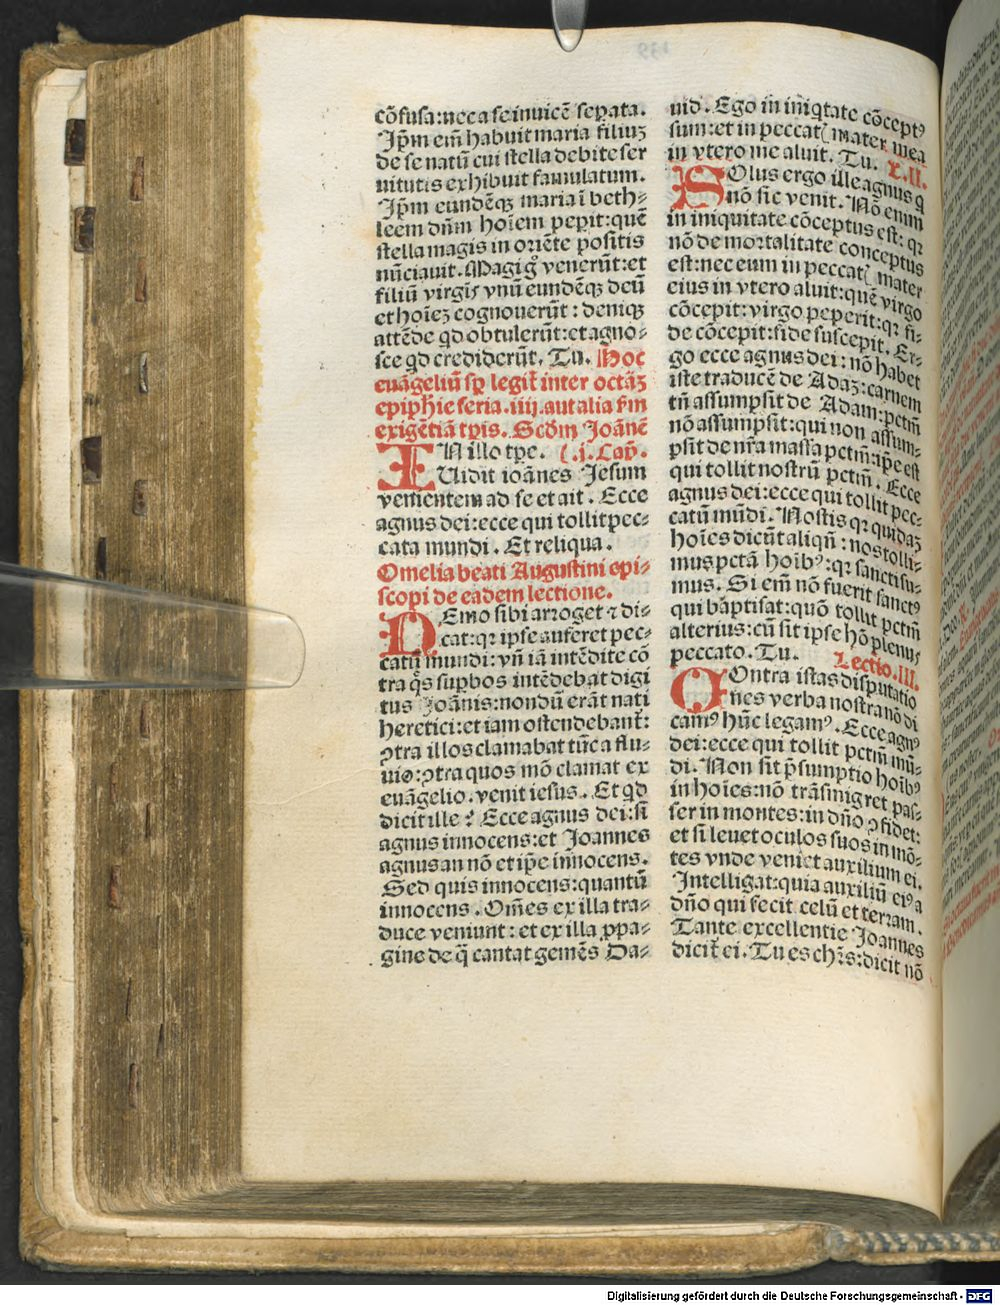 cōfusa:nec a se inuicē sepata.
Ipm em̄ habuit maria filiuꝫ
de se natū cui stella debite ser
uitutis exhibuit famulatum.
Ipm eundēqꝫ maria ī beth⸗
leem dn̄m hoīem pepit:quē
stella magis in oriēte positis
nūciauit. Magi gͦ venerūt:et
filiū virgis vnū eundēqꝫ deū
et hoīeꝫ cognouerūt : deniqꝫ
attēde qd obtulerūt:et agno⸗
sce qd crediderūt. Tu. Hoc
euāgeliū sp legit̄ inter octāꝫ
epiphie feria .iiij. aut alia fm
exigētiā tpis. Scdm Joānē
IN illo tpe. (.j. Cap̄.
Uidit ioānes Jesum
venientem ad se et ait . Ecce
agnus dei:ecce qui tollit pec⸗
cata mundi. Et reliqua.
Omelia beati Augustini epi⸗
scopi de eadem lectione.
NEmo sibi arroget ⁊ di⸗
cat:qꝛ ipse auferet pec⸗
catū mundi: vn̄ iā intēdite cō
tra q̄s supbos intēdebat digi
tus Joānis:nondū erāt nati
heretici:et iam ostendebant̄:
ꝯtra illos clamabat tūc a flu⸗
uio:ꝯtra quos mō clamat ex
euāgelio. venit iesus. Et qd
dicit ille? Ecce agnus dei:si
agnus innocens:et Joannes
agnus an nō et ipe innocens.
Sed quis innocens:quantū
innocens . Om̄es ex illa tra⸗
duce veniunt: et ex illa ꝓpa⸗
gine de q̄ cantat gemēs Da⸗
uid. Ego in̄ iniqtate cōceptꝰ
sum:et in peccat( mater mea
in vtero me aluit. Tu. L.II.
SOlus ergo ille agnus q
nō sic venit. Nō enim
in iniquitate cōceptus est: qꝛ
nō de mortalitate conceptus
est:nec eum in peccat( mater
eius in vtero aluit:quē virgo
cōcepit:virgo peperit:qꝛ fi⸗
de cōcepit:fide suscepit. Er⸗
go ecce agnus dei: nō habet
iste traducē de Adaꝫ:carnem
tn̄ assumpsit de Adam:pctm̄
nō assumpsit:qui non assum⸗
psit de nr̄a massa pctm̄:ipe est
qui tollit nostrū pctm̄. Ecce
agnus dei:ecce qui tollit pec⸗
catū mūdi. Nostis qꝛ quidaꝫ
hoīes dicūt aliqn̄ : nos tolli⸗
mus pctā hoībꝰ:qꝛ sancti su⸗
mus. Si em̄ nō fuerit sanctꝰ
qui baptisat:quō tollit pctm̄
alterius:cū sit ipse hō plenus
peccato. Tu. Lectio.III.
COntra istas disputatio
nes verba nostra nō di
camꝰ hūc legamꝰ. Ecce agnꝰ
dei:ecce qui tollit pctm̄ mū⸗
di. Non sit p̄sumptio hoībꝰ
in hoīes:nō trāsmigret pas⸗
ser in montes:in dn̄o ꝯfidet:
et si leuet oculos suos in mō⸗
tes vnde veniet auxilium ei.
Intelligat:quia auxiliū eiꝰ a
dn̄o qui fecit celū et terram.
Tante excellentie Joannes
dicit̄ ei. Tu es chr̄s:dicit nō
Digitalisierung gefördert durch die Deutsche Forschungsgemeinschaft - DFG